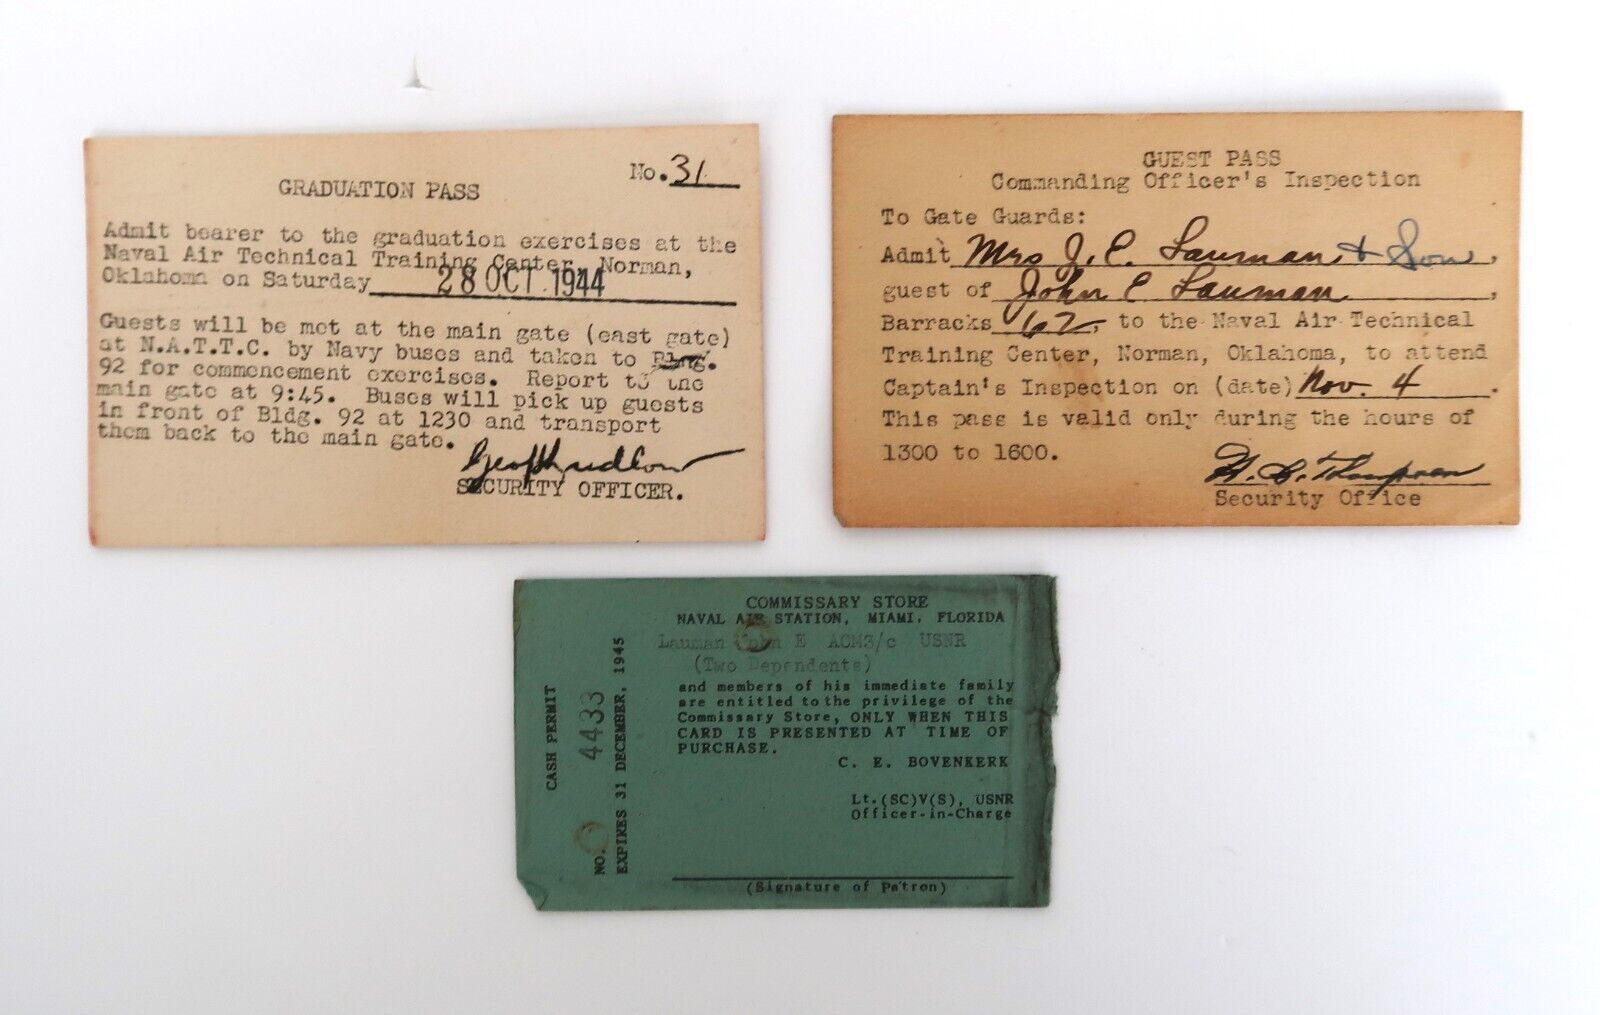 No. 31
GRADUATION PASS
Admit bearer to the graduation exercises at the
Naval Air Technical Training Center, Norman,
Oklahoma on Saturday 28 OCT 1944
Guests will be met at the main gate (east gate)
at N.A.T.T.C. by Navy buses and taken to Bldg.
92 for commencement exercises. Report to the
main gate at 9:45. Buses will pick up guests
in front of Bldg. 92 at 1230 and transport
them back to the main gate.
SECURITY OFFICER.
GUEST PASS
Commanding Officer's Inspection
To Gate Guards:
Admit Mrs J. E. Lauman, + Son,
guest of John E Lauman,
Barracks 62, to the Naval Air Technical
Training Center, Norman, Oklahoma, to attend
Captain's Inspection on (date) Nov. 4.
This pass is valid only during the hours of
1300 to 1600.
Thompson
Security Office
COMMISSARY STORE
NAVAL AIR STATION, MIAMI, FLORIDA
Lauman John E AOM3/c USNR
(Two Dependents)
and members of his immediate family
are entitled to the privilege of the
Commissary Store, ONLY WHEN THIS
CARD IS PRESENTED AT TIME OF
PURCHASE.
C. E. BOVENKERK
Lt.(SC)V(S), USNR
Officer-in-Charge
(Signature of Patron)
CASH PERMIT
NO. 4433
EXPIRES 31 DECEMBER, 1945